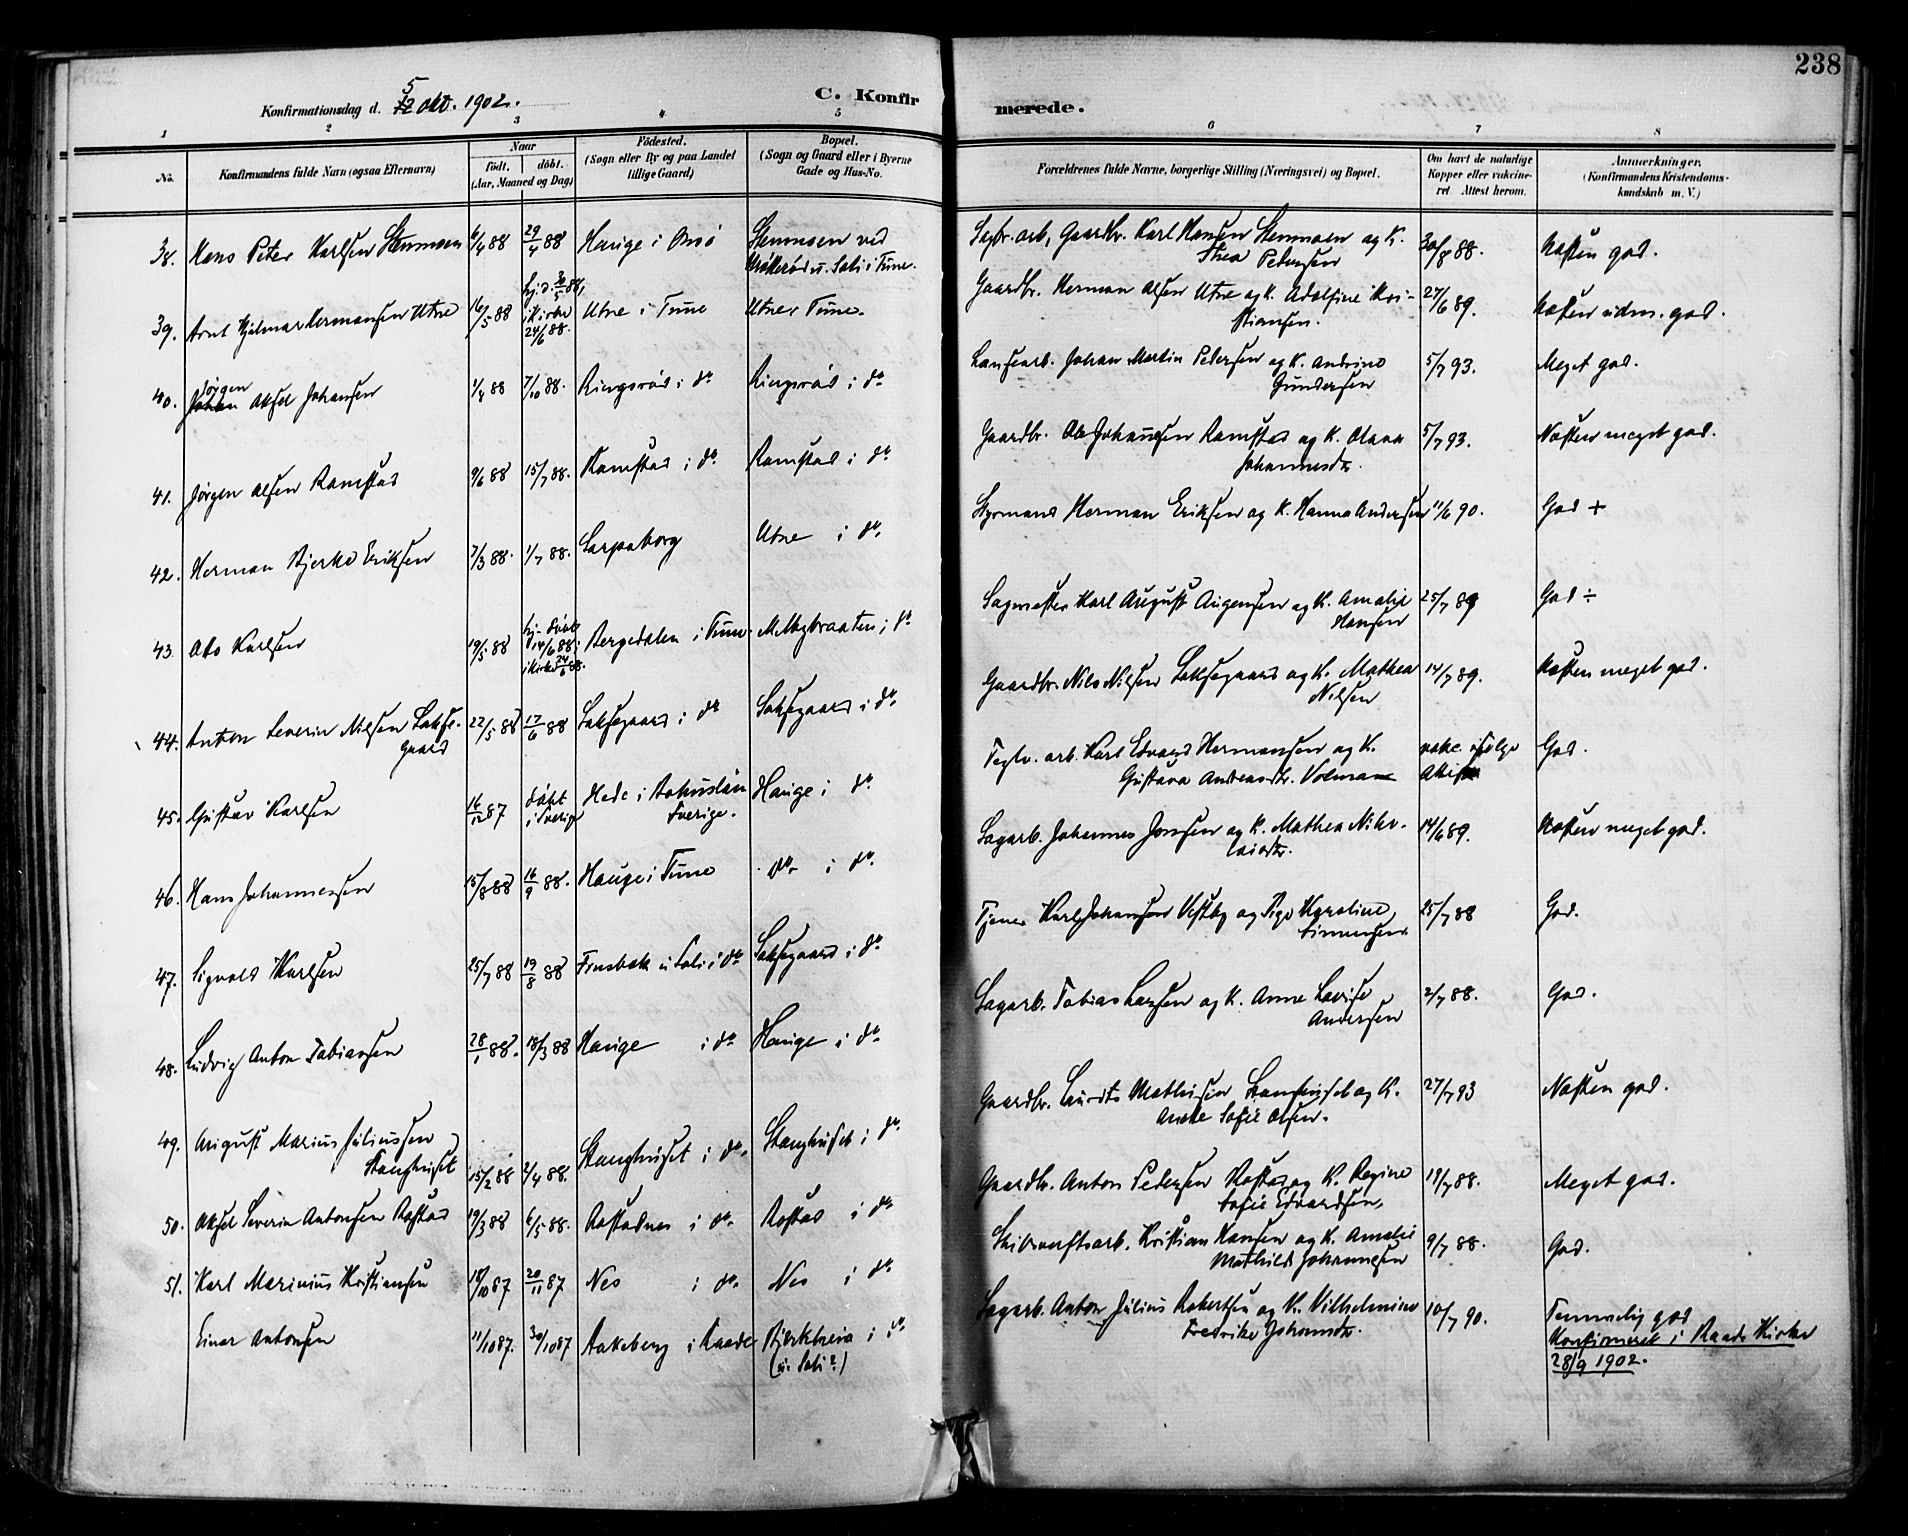 238
Konfirmationsdag d. 5 12 Okt. 1902.
C. Konfirmerede.
1 2 3 4 5 6 7 8
No.
Konfirmandens fulde Navn (ogsaa Efternavn)
Naar
födt. döbt.
(Aar, Maaned og Dag)
Födested.
(Sogn eller By og paa Landet
tillige Gaard)
Bopæl.
(Sogn og Gaard eller i Byerne
Gade og Hus-No.
Forældrenes fulde Navne, borgerlige Stilling (Næringsvei) og Bopæl.
Om havt de naturlige
Kopper eller vakcine-
ret. Attest herom.
Anmærkninger.
(Konfirmandens Kristendoms-
kundskab m. V.)
38. Hans Peter Karlsen Stenmoen 6/4 88 29/4 88 Hauge i Onsö Stenmoen ved
u. Soli i Tune.
Gaardbr. Karl Hansen Stenmoen og K.
Thea Pedersen 30/8 88. Næsten god.
39. Arnt Hjalmar Hermansen Utne 16/5 88 hj.d. 88,
i Kirke
24/6 88. Utne i Tune Utne i Tune.
Gaardbr. Herman Olsen Utne og K. Adolfine Kri-
stiansen. 27/6 89. Næsten udm. god.
40. Jörgen
Johan Aksel Johansen 1/4 88 7/10 88. Ringsrød i do Ringsrød i do
Johan Martin Pedersen og K. Andrine
Gundersen 5/7 93. Meget god.
41. Jørgen Olsen Ramstad 9/6 88 15/7 88. Ramstad i do Ramstad i do
Gaardbr. Ole Johannesen Ramstad og K. Olava
Johannesdr. 5/7 93. Næsten meget god.
42. Herman Bjerke Eriksen 7/3 88. 1/7 88. Sarpsborg Utne i do
Styrmand Herman Eriksen og K. Hanna Andersen 11/6 90. God +
43. Otto Karlsen 19/5 88 hj. döbt
14/6 88,
i Kirke 88. Bergedalen i Tune. Melbybraaten i do
Sagmester Karl August Augensen og K. Amalie
Hansen 25/7 89 God ÷
44. Anton Severin Nilsen Laksegaard 22/5 88 17/6 88 Laksegaard i do Laksegaard i do
Gaardbr. Nils Nilsen Laksegaard og K. Mathea
Nilsen 14/7 89. Næsten meget god.
45. Gustav Karlsen 16/12 87 döbt
i Sverige Hede i Bohuslän
Sverige. Hauge i do
Teglv. arb. Karl Edvard Hermansen og K.
Gustava Andreasdr. Volman vakc. ifølge
Attest God.
46. Hans Johannessen 15/8 88 16/9 88. Hauge i Tune do i do
Sagarb. Johannes Jonsen og K. Mathea Niko-
laisdr. 14/6 89. Næsten meget god.
47. Sigvald Karlsen 25/7 88 19/8 88 Finsbæk u. Soli i do Laksegaard i do
Tjener Karl Johansen Vestby og Pige Karoline
Simensen 25/7 88 God.
48. Ludvig Anton Tobiassen 28/1 88. 18/3 88 Hauge i do Hauge i do
Sagarb. Tobias Larsen og K. Anne Lovise
Andersen 2/7 88. God.
49. August Marius Juliussen
Stanghuset 15/2 88 2/4 88. Stanghuset i do. Stanghuset i do
Gaardbr. Laurits Mathisen Stanghuset og K.
Sofie Olsen. 27/7 93 Næsten god.
50. Aksel Severin Antonsen Rostad 19/3 88 6/5 88. Rostadnes i do. Rostad i do
Gaardbr. Anton Pedersen Rostad og K. Regine
Sofie Edvardsen, 19/7 88. Meget god.
51. Karl Marinius Kristiansen 18/10 87 20/11 87 Nes i do. Nes i do
Skibsverftsarb. Kristian Hansen og K. Amalie
Mathilde Johannesen 9/7 88. God.
Einar Antonsen 11/10 87. 30/10 87 Aakeberg i Raade Bjerkheia i do
(u. Soli?)
Sagarb. Anton Julius Robertsen og K. Vilhelmine
Fredrike Johansdr. 10/7 90. Temmelig god
Konfirmeret i Raade Kirke
28/9 1902.